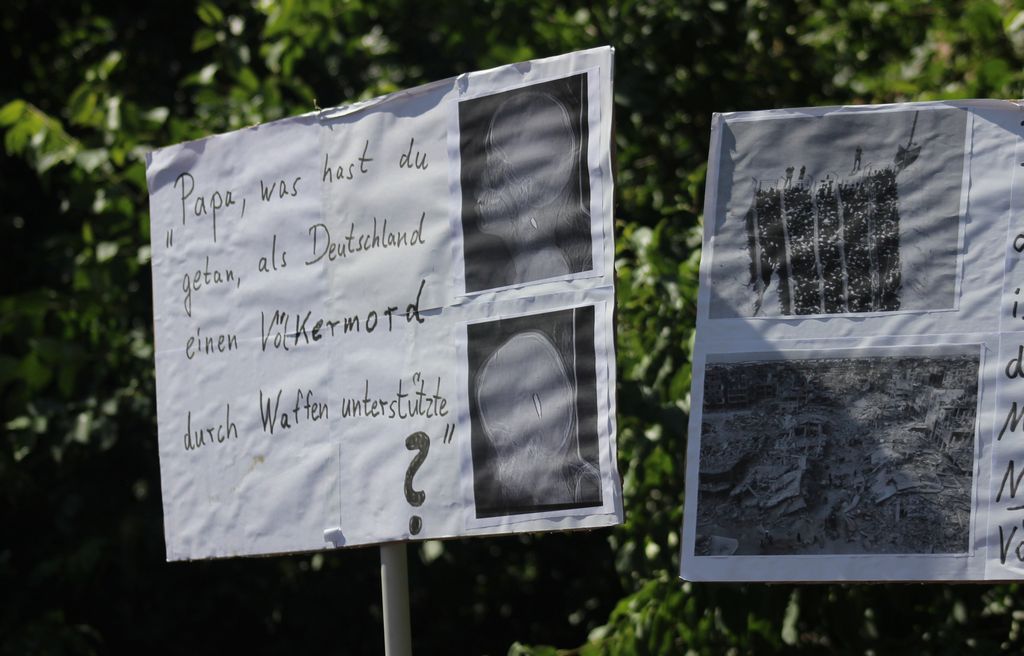 „Papa, was hast du
getan, als Deutschland
einen Völkermord
durch Waffen unterstützte"
?